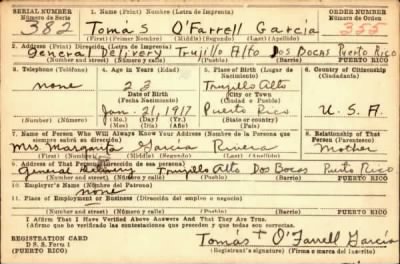 SERIAL NUMBER 1. Name (Print) Nombre (Letra de Imprenta) ORDER NUMBER
Número de Serie Número de Orden
382 Tomás O'Farrell García 355
(First) (Primer Nombre) (Middle) (Segundo) (Last) (Apellido)
2. Address (Print) Dirección (Letra de Imprenta)
General Delivery Trujillo Alto Dos Bocas Puerto Rico
(Number and street) (Número y calle) (Town) (Pueblo) (Barrio) PUERTO RICO
3. Telephone (Teléfono) 4. Age in Years (Edad) 5. Place of Birth (Lugar de Nacimiento) 6. Country of Citizenship (Ciudadanía)
none 23 Trujillo Alto
Date of Birth (City or Town)
(Fecha Nacimiento) (Ciudad o Pueblo)
Jan. 21, 1917 Puerto Rico U.S.A.
(Mo.) (Day) (Yr.) (State or country)
(Mes) (Día) (Año) (Estado o país)
7. Name of Person Who Will Always Know Your Address (Nombre de la Persona que siempre sabrá su dirección) 8. Relationship of That Person (Parentesco)
Mrs. Margarita García Rivera Mother
(First) (Nombre) (Middle) (Segundo) (Last) (Apellido)
9. Address of That Person (Dirección de esa persona)
General Delivery Trujillo Alto Dos Bocas Puerto Rico
(Number and street) (Número y calle) (Town) (Pueblo) (Barrio) PUERTO RICO
10. Employer's Name (Nombre del Patrono)
none
11. Place of Employment or Business (Dirección del empleo o negocio)
(Number and street) (Número y calle) (Town) (Pueblo) (Barrio) PUERTO RICO
I Affirm That I Have Verified Above Answers And That They Are True.
(Afirmo que he verificado las contestaciones que preceden y que todas son ciertas.)
REGISTRATION CARD
D. S. S. Form 1
(PUERTO RICO)
Tomás T O'Farrell García
(Registrant's signature) (Firma o marca del inscrito)